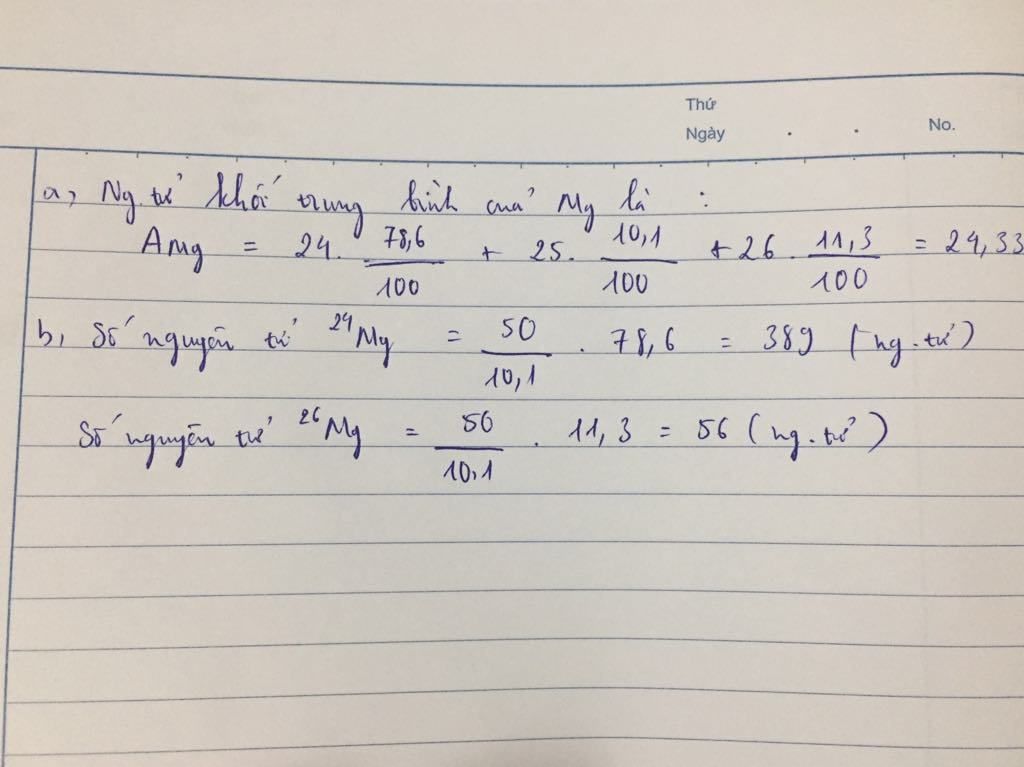 Thứ
Ngày . . No.
a, Ng.tử khối trung bình của Mg là :
AMg = 24. 78,6/100 + 25. 10,1/100 + 26. 11,3/100 = 24,33
b, Số nguyên tử ²⁴Mg = 50/10,1 . 78,6 = 389 (ng.tử)
Số nguyên tử ²⁶Mg = 50/10,1 . 11,3 = 56 (ng.tử)